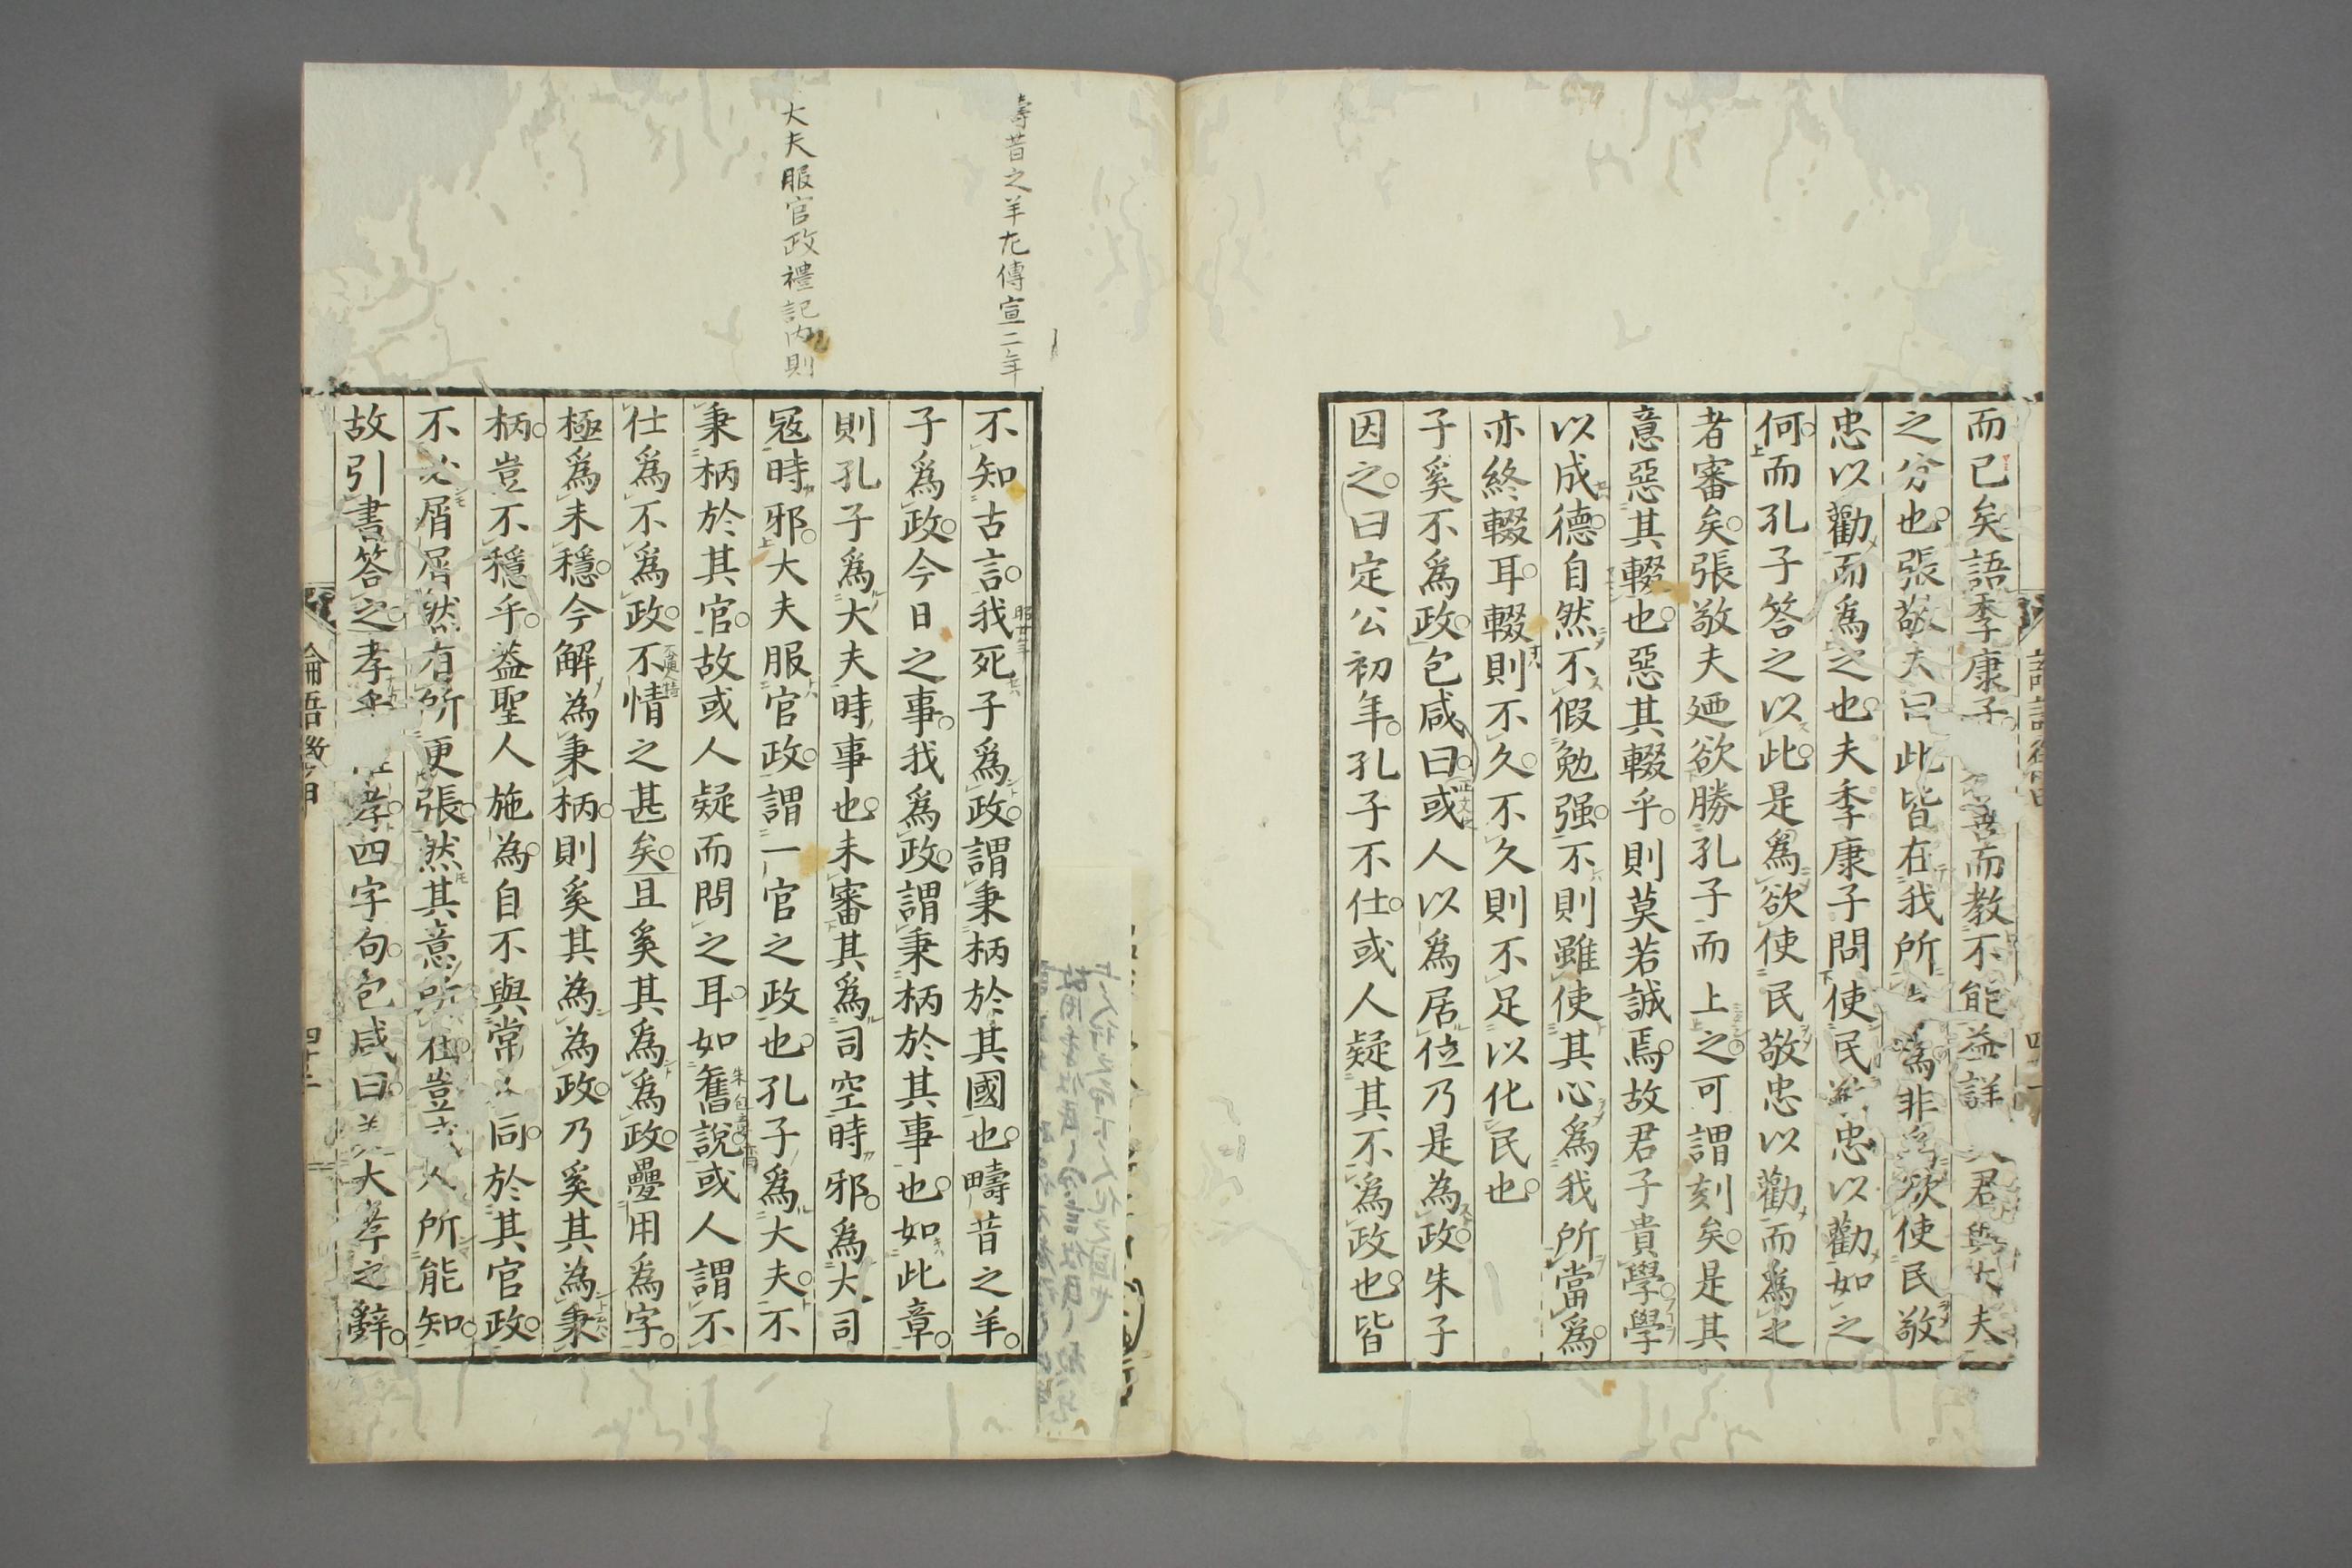 而已矣語季康子
善而教不能益詳
君與大夫
之分也張敬夫曰此皆在我所
為非為欲使民敬
忠以勸而爲之也夫季康子問使民敬忠以勸如之
何而孔子答之以此是爲欲使民敬忠以勸而爲之
者審矣張敬夫廼欲勝孔子而上之可謂刻矣是其
意惡其輟也惡其輟乎則莫若誠焉故君子貴學學
以成德自然不假勉强不則雖使其心爲我所當爲
亦終輟耳輟則不久不久則不足以化民也
子奚不爲政包咸曰或人以爲居位乃是為政朱子
因之曰定公初年孔子不仕或人疑其不爲政也皆
壽昔之羊尤傳宣二年
大夫服官政禮記内則
不知古言我死子爲政謂秉柄於其國也疇昔之羊
子爲政今日之事我爲政謂秉柄於其事也如此章
則孔子爲大夫時事也未審其爲司空時邪爲大司
寇時邪大夫服官政謂一官之政也孔子爲大夫不
秉柄於其官故或人疑而問之耳如舊說或人謂不
仕爲不爲政不情之甚矣且奚其爲爲政疊用為字
極爲未穩今解為秉柄則奚其為為政乃奚其為秉
柄豈不穩乎蓋聖人施為自不與常人同於其官政
不必屑屑然有所更張然其意所在豈或人所能知
故引書答之孝乎惟孝四字句包咸曰美大孝之辭
論語徵甲